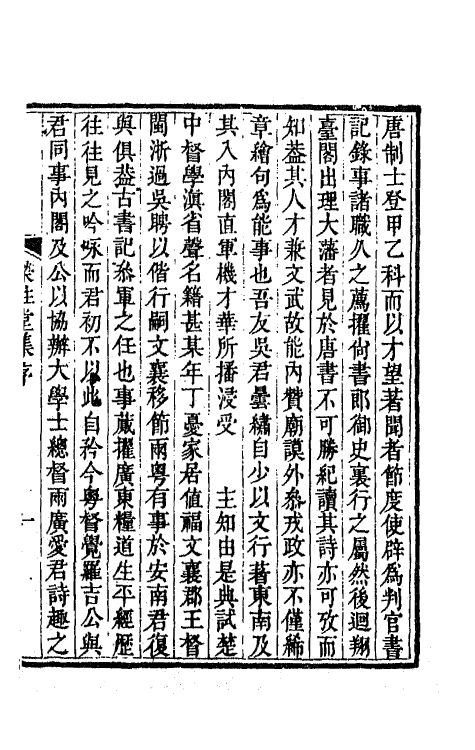 唐制士登甲乙科而以才望著聞者節度使辟爲判官書
記錄事諸職久之薦擢尙書郎御史裏行之屬然後迴翔
臺閣出理大藩者見於唐書不可勝紀讀其詩亦可攷而
知葢其人才兼文武故能內贊廟謨外叅戎政亦不僅絺
章繪句爲能事也吾友吳君曇繡自少以文行著東南及
其入內閣直軍機才華所播浸受　主知由是典試楚
中督學滇省聲名籍甚某年丁憂家居值福文襄郡王督
閩浙過吳聘以偕行嗣文襄移節兩粤有事於安南君復
與俱葢古書記叅軍之任也事蕆擢廣東糧道生平經歷
往往見之吟咏而君初不以此自矜今粤督覺羅吉公與
君同事內閣及公以協辦大學士總督兩廣愛君詩趣之
堂集序
一